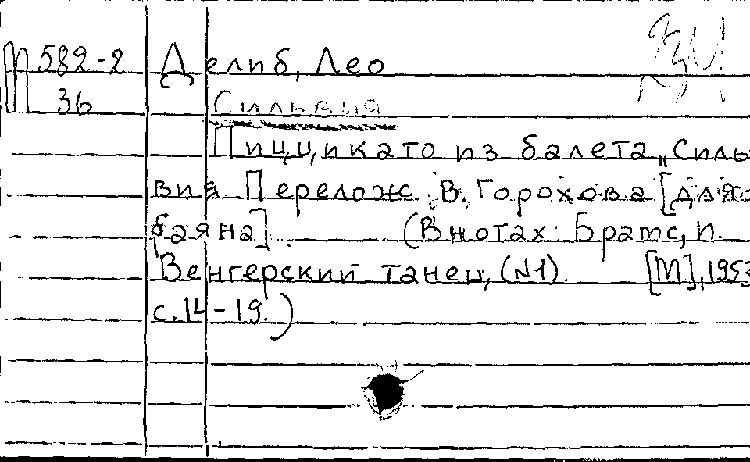 П 582-2 Делиб, Лео
36 Сильвия
Пиццикато из балета „Силь-
вия Перелож. В. Горохова [для
баяна]. (В нотах: Брамс, И.
Венгерский танец, (N1) [М], 1953
с. 14-19.)